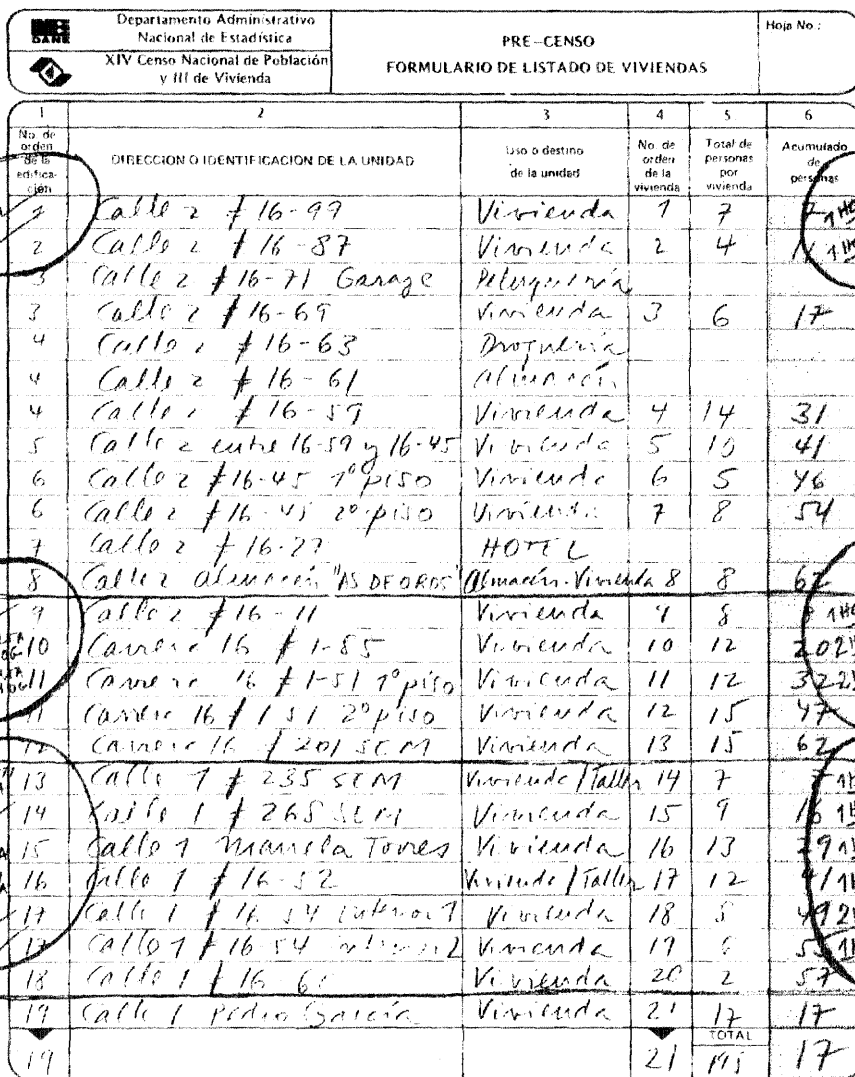 DANE
Departamento Administrativo
Nacional de Estadística
XIV Censo Nacional de Población
y III de Vivienda
PRE-CENSO
FORMULARIO DE LISTADO DE VIVIENDAS
Hoja No.:
1 2 3 4 5 6
No. de orden de la edificación DIRECCION O IDENTIFICACION DE LA UNIDAD Uso o destino de la unidad No. de orden de la vivienda Total de personas por vivienda Acumulado de personas
1 Calle 2 # 16-99 Vivienda 1 7 7
2 Calle 2 # 16-87 Vivienda 2 4 11
3 Calle 2 # 16-71 Garage
3 Calle 2 # 16-69 Vivienda 3 6 17
4 Calle 2 # 16-63 Droguería
4 Calle 2 # 16-61 Almacén
4 Calle 2 # 16-59 Vivienda 4 14 31
5 Calle 2 entre 16-59 y 16-45 Vivienda 5 10 41
6 Calle 2 # 16-45 1º piso Vivienda 6 5 46
6 Calle 2 # 16-45 2º piso Vivienda 7 8 54
7 Calle 2 # 16-27 HOTEL
8 Calle 2 almacén "AS DE OROS" Almacén-Vivienda 8 8 62
9 Calle 2 # 16-11 Vivienda 9 8 8
10 Carrera 16 # 1-85 Vivienda 10 12 20
11 Carrera 16 # 1-51 1º piso Vivienda 11 12 32
11 Carrera 16 # 1-51 2º piso Vivienda 12 15 47
12 Carrera 16 # 201 SCM Vivienda 13 15 62
13 Calle 1 # 235 SCM Vivienda/Taller 14 7 7
14 Calle 1 # 265 SCM Vivienda 15 9 16
15 Calle 1 Manuela Torres Vivienda 16 13 29
16 Calle 1 # 16-52 Vivienda/Taller 17 12 41
17 Calle 1 # 16-54 interior 1 Vivienda 18 5
17 Calle 1 # 16-54 interior 2 Vivienda 19 6 55
18 Calle 1 # 16-61 Vivienda 20 2 57
19 Calle 1 Pedro García Vivienda 21 17 17
TOTAL
19 21 195 17